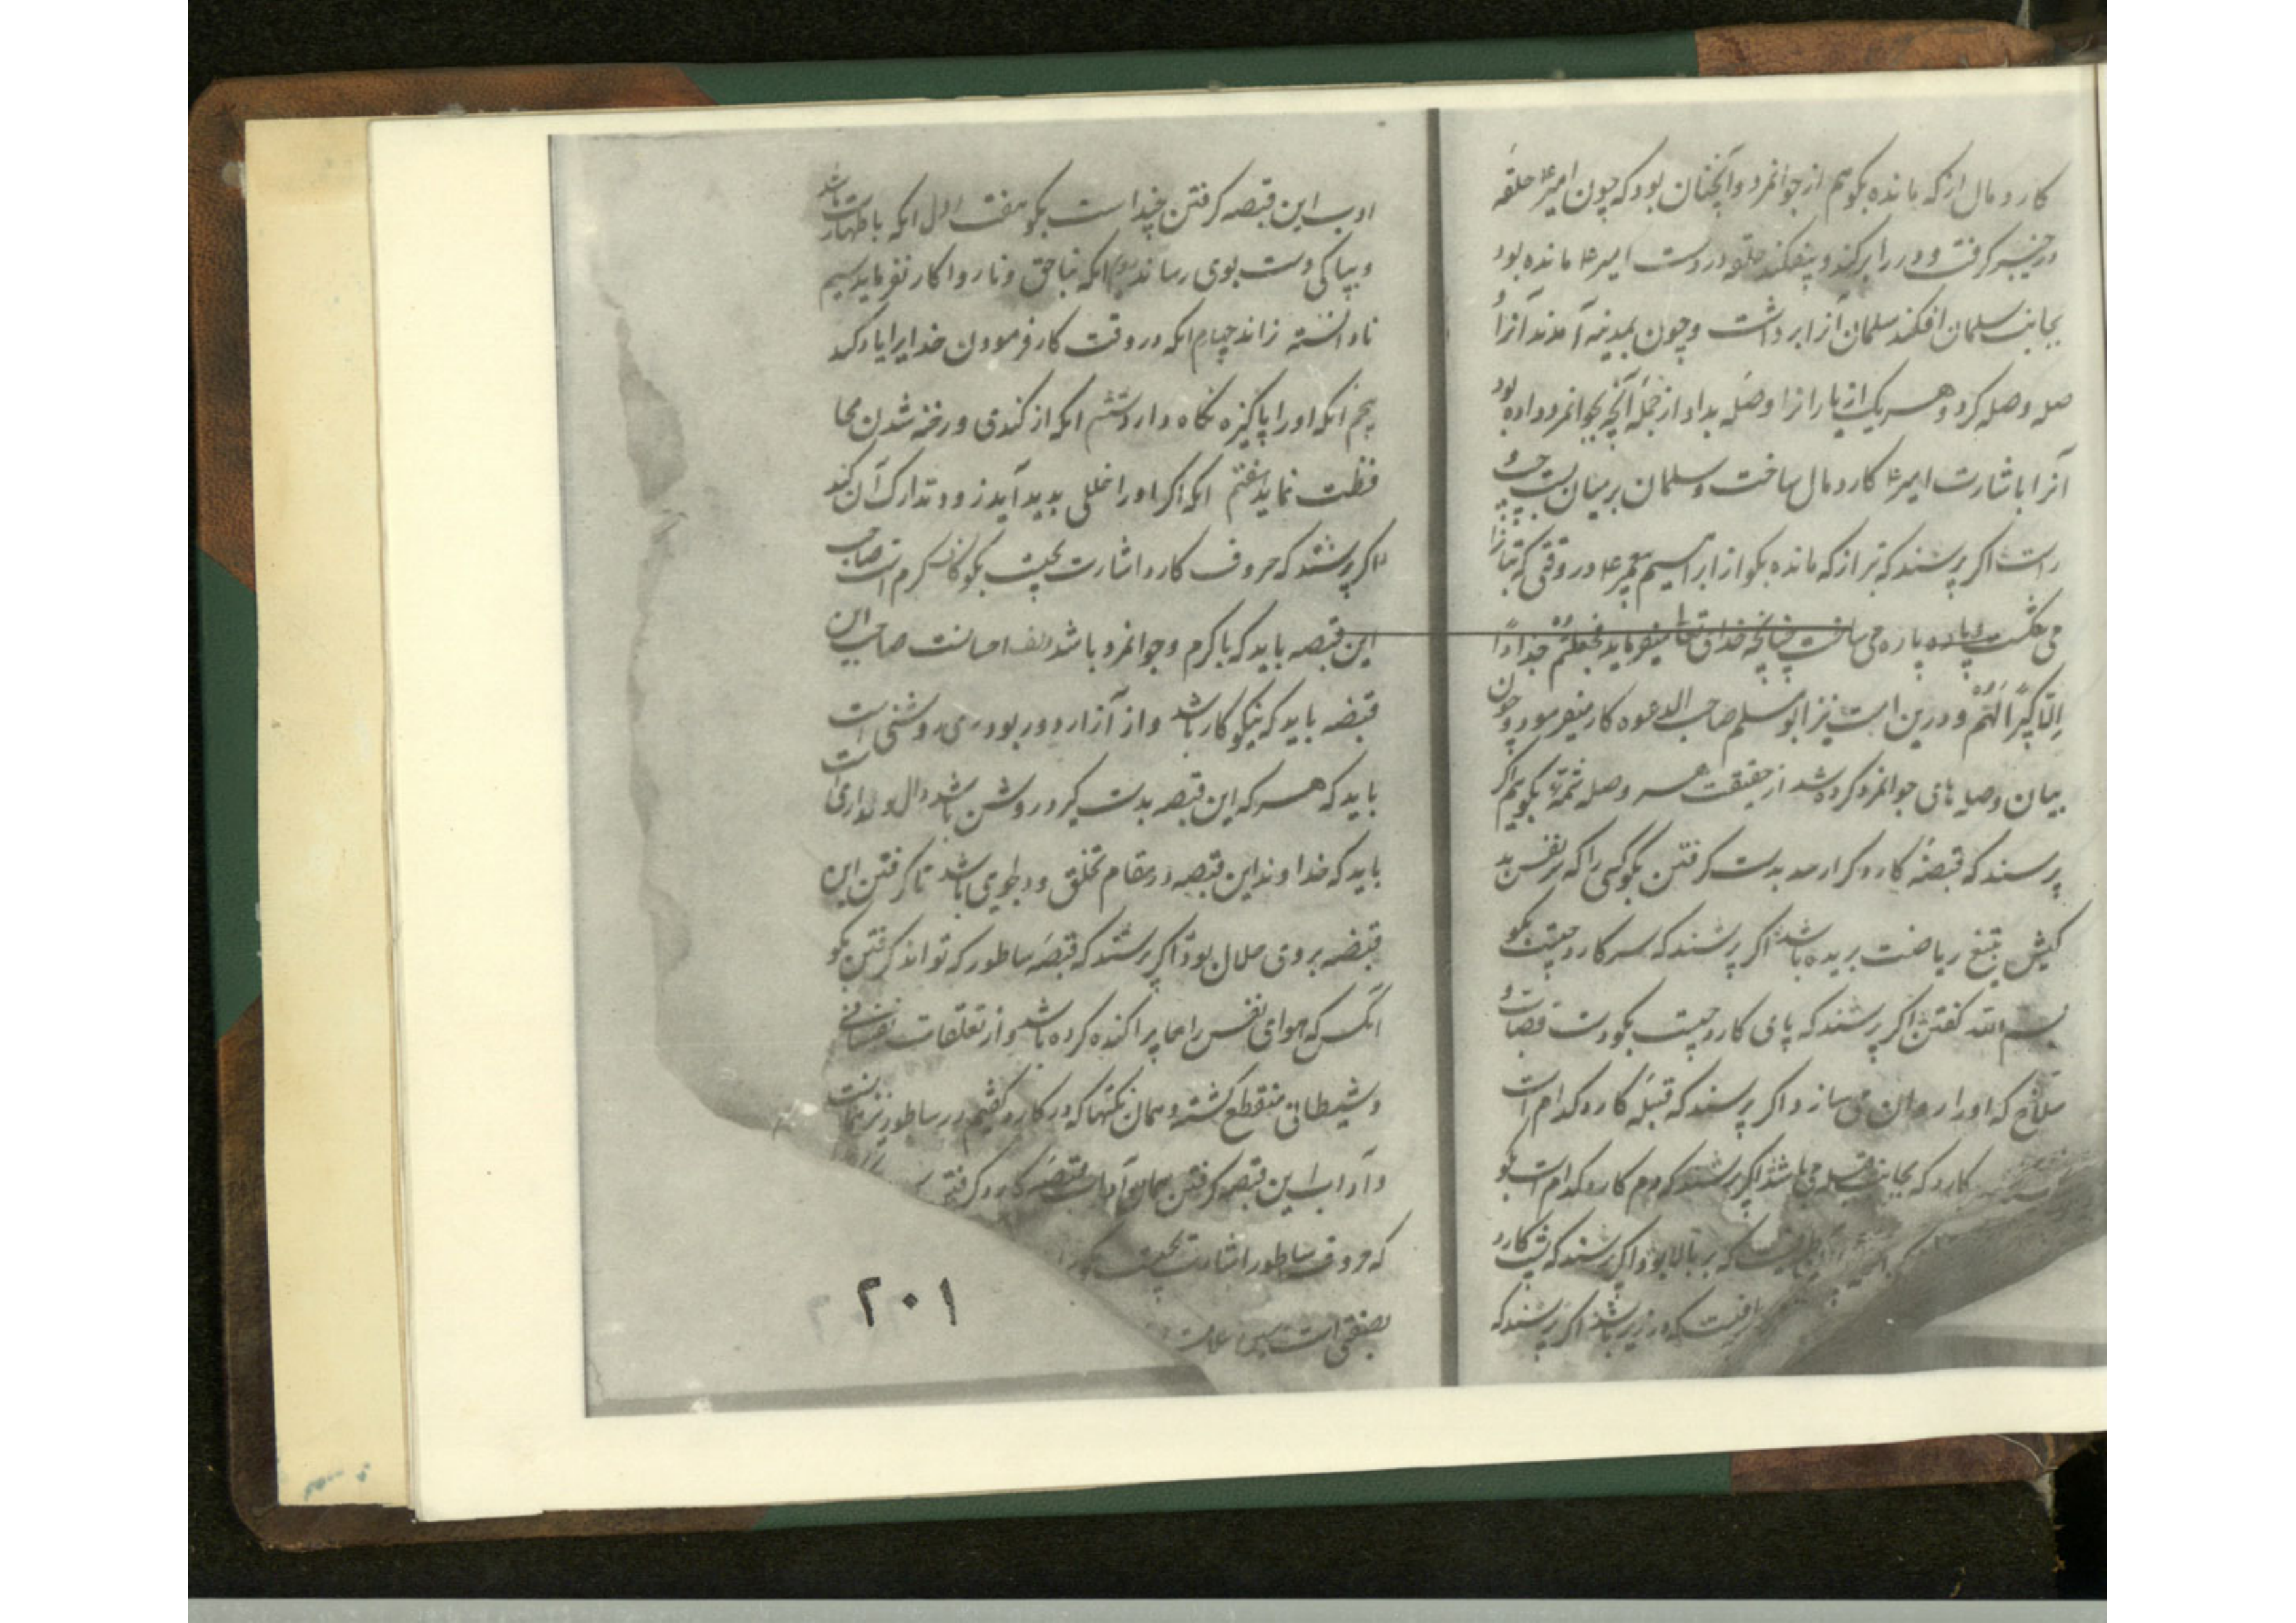 کارد مال از که مانده بگو هم از جوانمرد و آنچنان بود که چون امیر ع حلقه
در خیبر گرفت و در را برکند و بیفکند حلقه در دست امیر ع مانده بود
بجانب سلمان افکند سلمان آنرا برداشت و چون بمدینه آمدند آنرا
صله وصله کرد و هر یک از یارانرا وصله بداد از جمله آنچه بجوانمرد داده بود
آنرا باشارت امیر ع کارد مال ساخت و سلمان بر میان بست
راست اگر پرسند که تبر از که مانده بگو از ابراهیم پیغمبر ع در وقتی که بتانرا
می شکست و پاره پاره می ساخت چنانچه خدای تعالی میفرماید فجعلهم جذاذا
الا کبیرا لهم و درین امت نیز ابو مسلم صاحب الدعوه کار میفرمود و چون
بیان وصله های جوانمرد کرده شد از حقیقت هر وصله شمه بگویم اگر
پرسند که قبضه کارد کرا رسد بدست گرفتن بگو کسی را که سر نفس بد
کیش بتیغ ریاضت بریده باشد اگر پرسند که سر کارد چیست بگو
بسم الله گفتن اگر پرسند که پای کارد چیست بگو دست قصاب و
سلاخ که او را روان می سازد اگر پرسند که قبله کارد کدام است
کارد که بجانب قبله می باشد اگر پرسند که دم کارد کدام است بگو
که بر بالا بود اگر پرسند که پشت کارد
که در زیر باشد اگر پرسند که
ادب این قبضه گرفتن چند است بگو هفت اول انکه با طهارت باشد
و بپاکی دست بوی رساند دوم انکه بناحق و ناروا کار نفرماید سیم
نادانسته نراند چهارم انکه در وقت کار فرمودن خدایرا یاد کند
پنجم انکه او را پاکیزه نگاه دارد ششم انکه از کندی و رخنه شدن محا
فظت نماید هفتم انکه اگر او را خللی پدید آید زود تدارک آن کند
اگر پرسند که حروف کارد اشارت بچیست بگو کاف کرم است صاحب
این قبضه باید که با کرم و جوانمرد باشد الف احسانست صاحب این
قبضه باید که نیکو کار باشد و از آزار دور بود ری روشنی است
باید که هر که این قبضه بدست گیرد روشن باشد دال دلداری است
باید که خداوند این قبضه در مقام تخلق و دلجویی باشد تا گرفتن این
قبضه بروی حلال بود اگر پرسند که قبضه ساطور که تواند گرفتن بگو
انکس که هوای نفس را پراکنده کرده باشد و از تعلقات نفسانی
و شیطانی منقطع گشته و همان نکتها که در کارد گفتیم در ساطور نیز همانست
و آداب این قبضه گرفتن همان آداب قبضه کارد گرفتن
که حروف ساطور اشارت بچیست بگو
است سین سلامت
۲۰۱